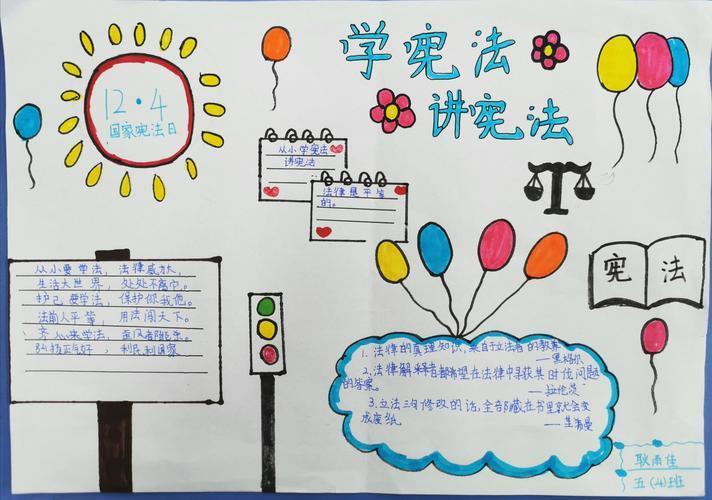 学宪法
讲宪法
12·4
国家宪法日
从小学宪法
讲宪法
法律是平等
的。
宪法
从小要学法，法律威力大，
生活大世界，处处不离它。
护己要学法，保护你我他。
法前人平等，用法闯天下。
齐心来学法，
弘扬正气好，利民利国家
1.法律的真理知识，来自立法者的教养
——黑格尔
2.法律解释者都希望在法律中寻获其时代问题
的答案。
——拉伦茨
3.立法三句修改的话，全部藏在书里就会变
成废纸
——基希曼
耿雨佳
五(4)班